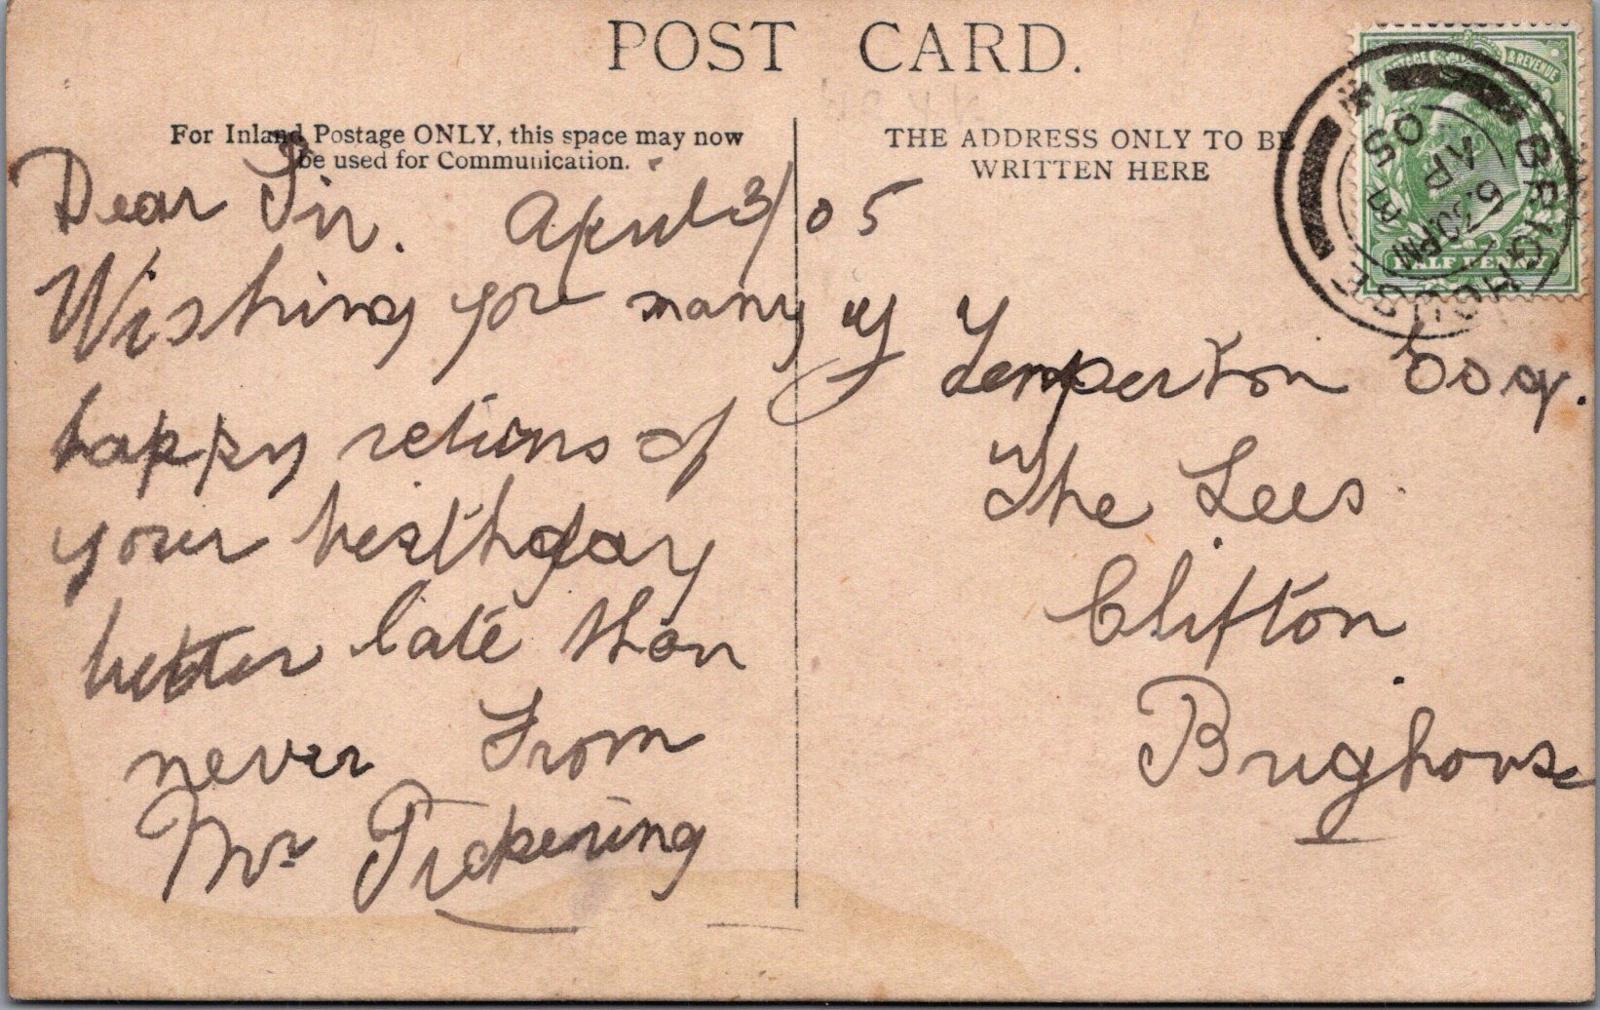 POST CARD.
For Inland Postage ONLY, this space may now
be used for Communication.
THE ADDRESS ONLY TO BE
WRITTEN HERE
Dear Sir. April 3/05
Wishing you many
happy returns of
your birthday
better late than
never From
Mr Pickering
Temperton Esq.
The Lees
Clifton
Brighouse
POSTAGE & REVENUE
HALF PENNY
BRIGHOUSE
7 30 PM
AP
05